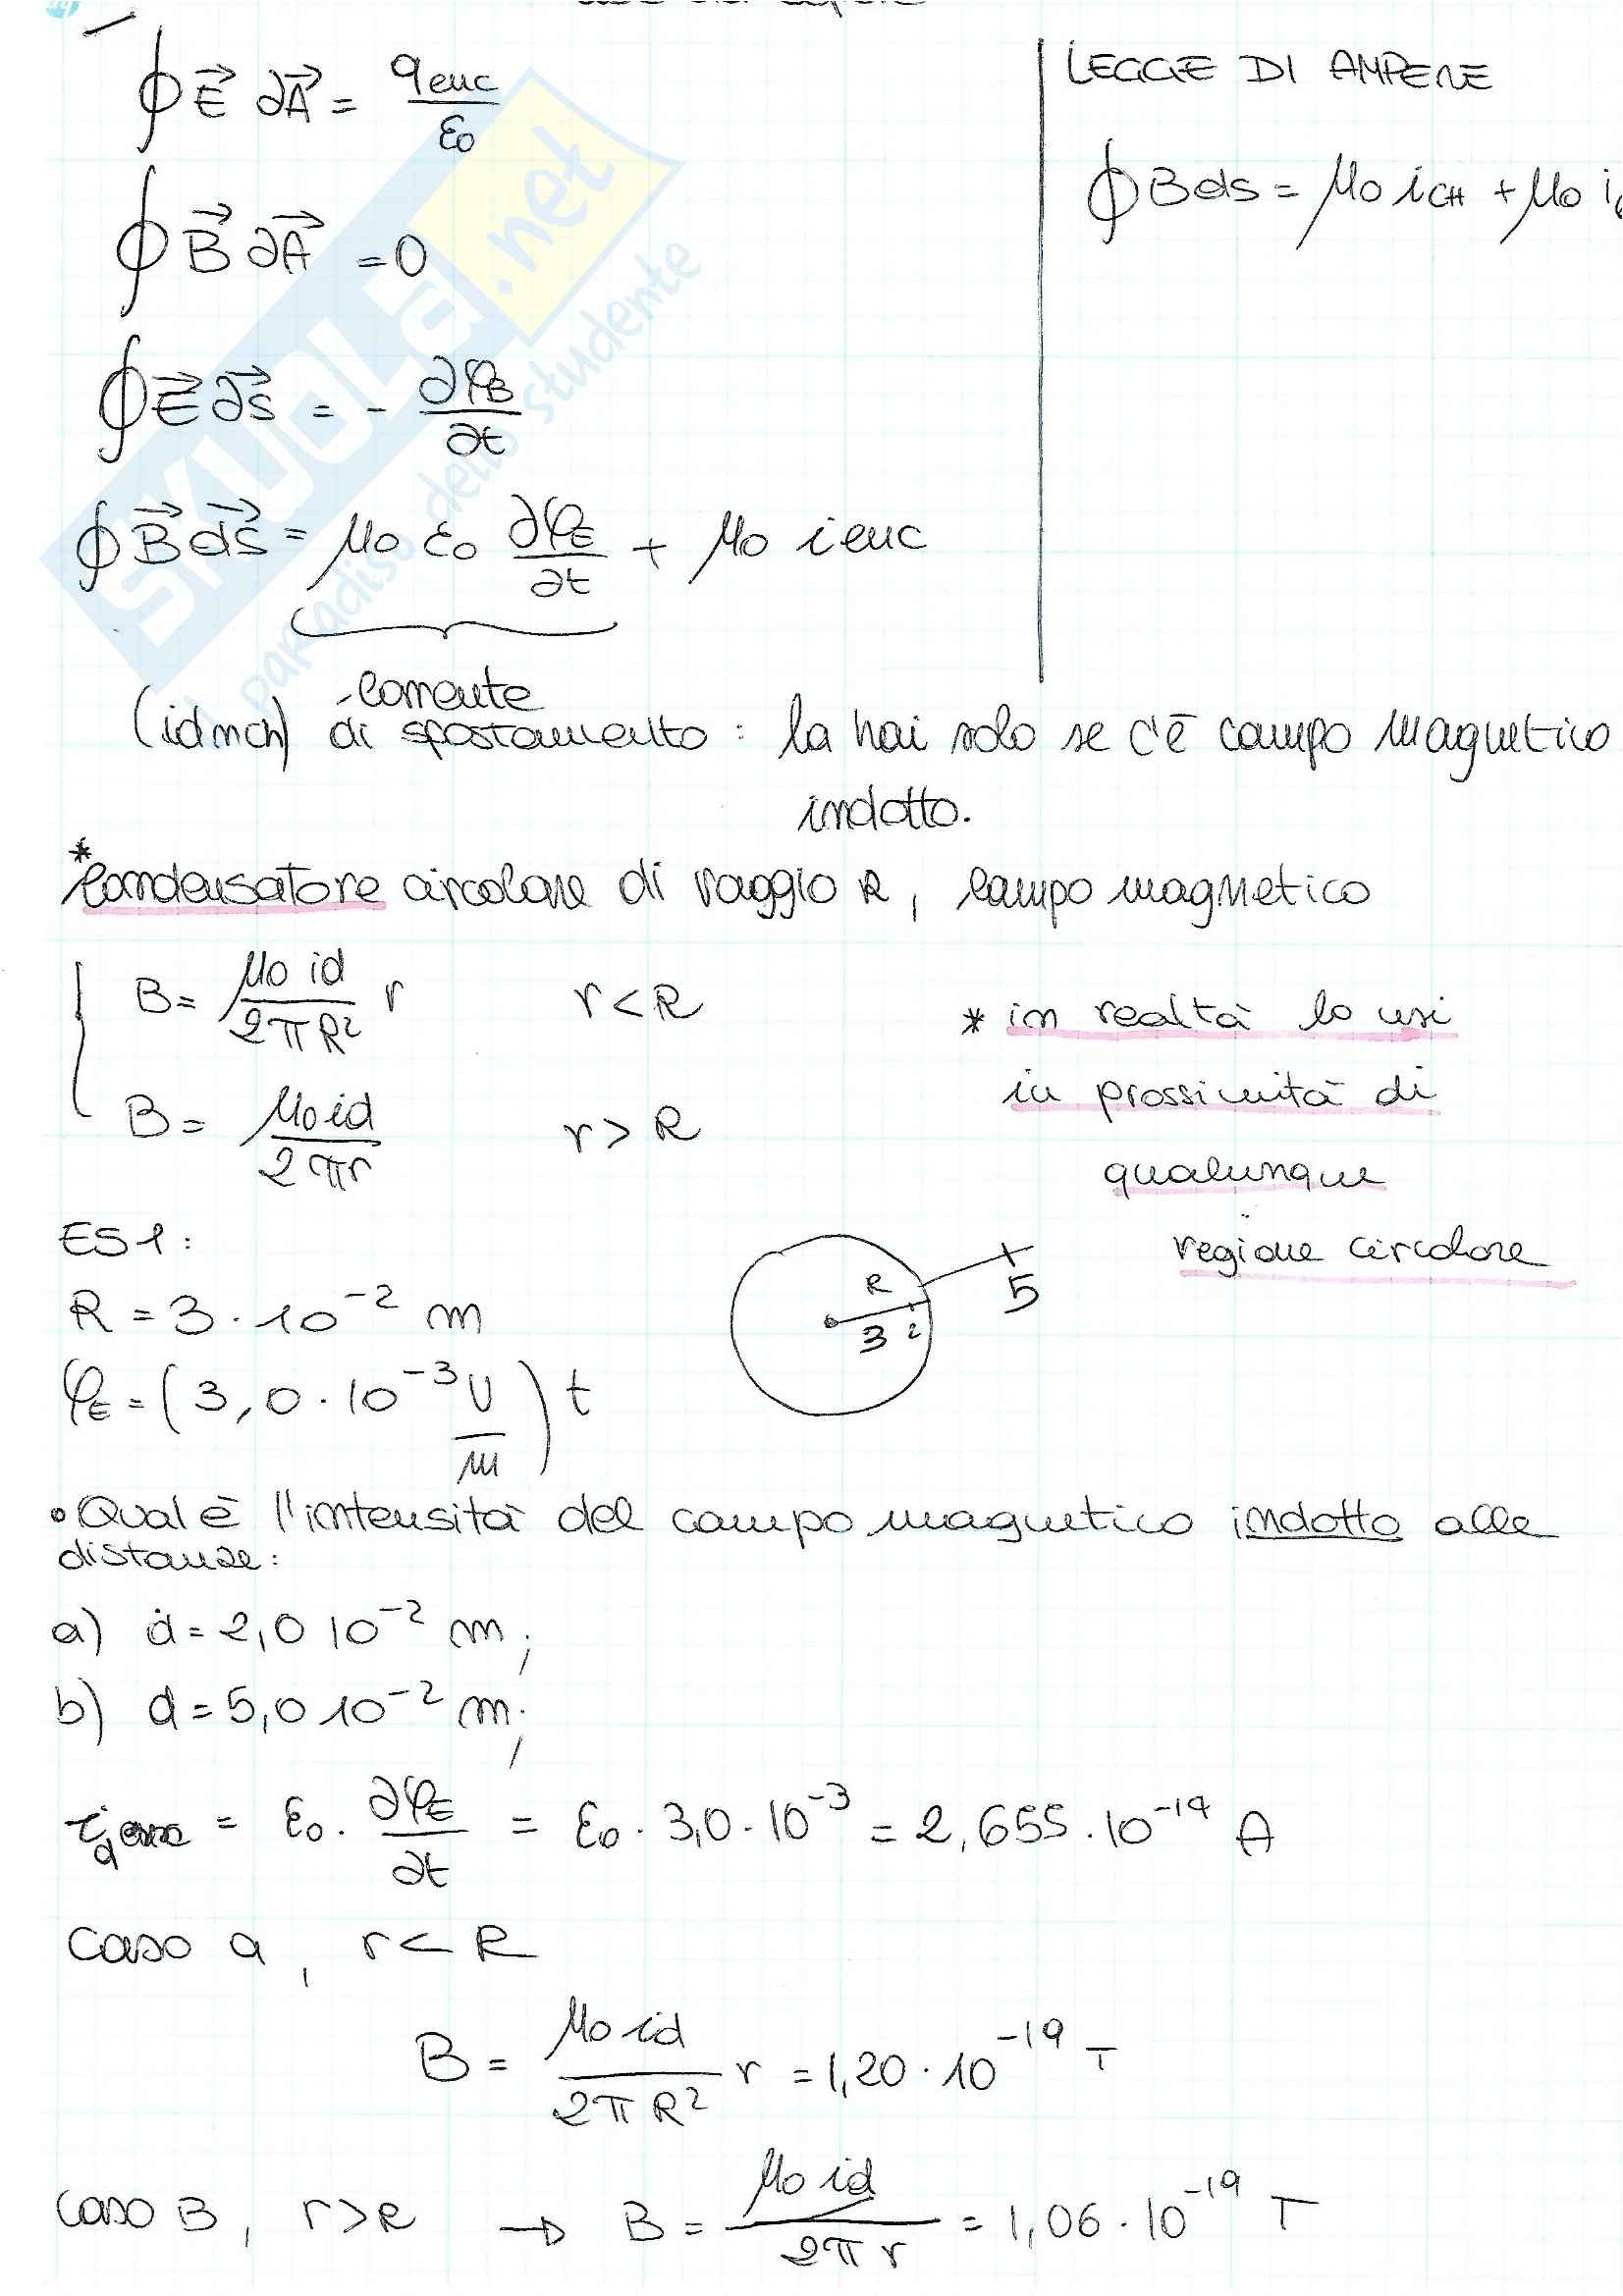 ∮ E⃗ ∂A⃗ = qenc/ε0
∮ B⃗ ∂A⃗ = 0
∮ E⃗ ∂s⃗ = - ∂φB/∂t
∮ B⃗ ds⃗ = μ0 ε0 ∂φE/∂t + μ0 ienc
LEGGE DI AMPERE
∮ B ds = μ0 iCH + μ0 i
SKUOLA.net
il paradiso dello studente
corrente
di spostamento : la hai solo se c'è campo magnetico
indotto.
*Condensatore circolare di raggio R, campo magnetico
B = μ0 id/2πR² r r < R
B = μ0 id/2πr r > R
* in realtà lo usi
in prossimità di
qualunque
regione circolare
ES 1:
R = 3 · 10⁻² m
φE = (3,0 · 10⁻³ V/m) t
R
3
2
5
• Qual è l'intensità del campo magnetico indotto alle
distanze:
a) d = 2,0 10⁻² m;
b) d = 5,0 10⁻² m;
= ε0 · ∂φE/∂t = ε0 · 3,0 · 10⁻³ = 2,655 · 10⁻¹⁴ A
caso a, r < R
B = μ0 id/2πR² r = 1,20 · 10⁻¹⁹ T
caso B, r > R → B = μ0 id/2πr = 1,06 · 10⁻¹⁹ T